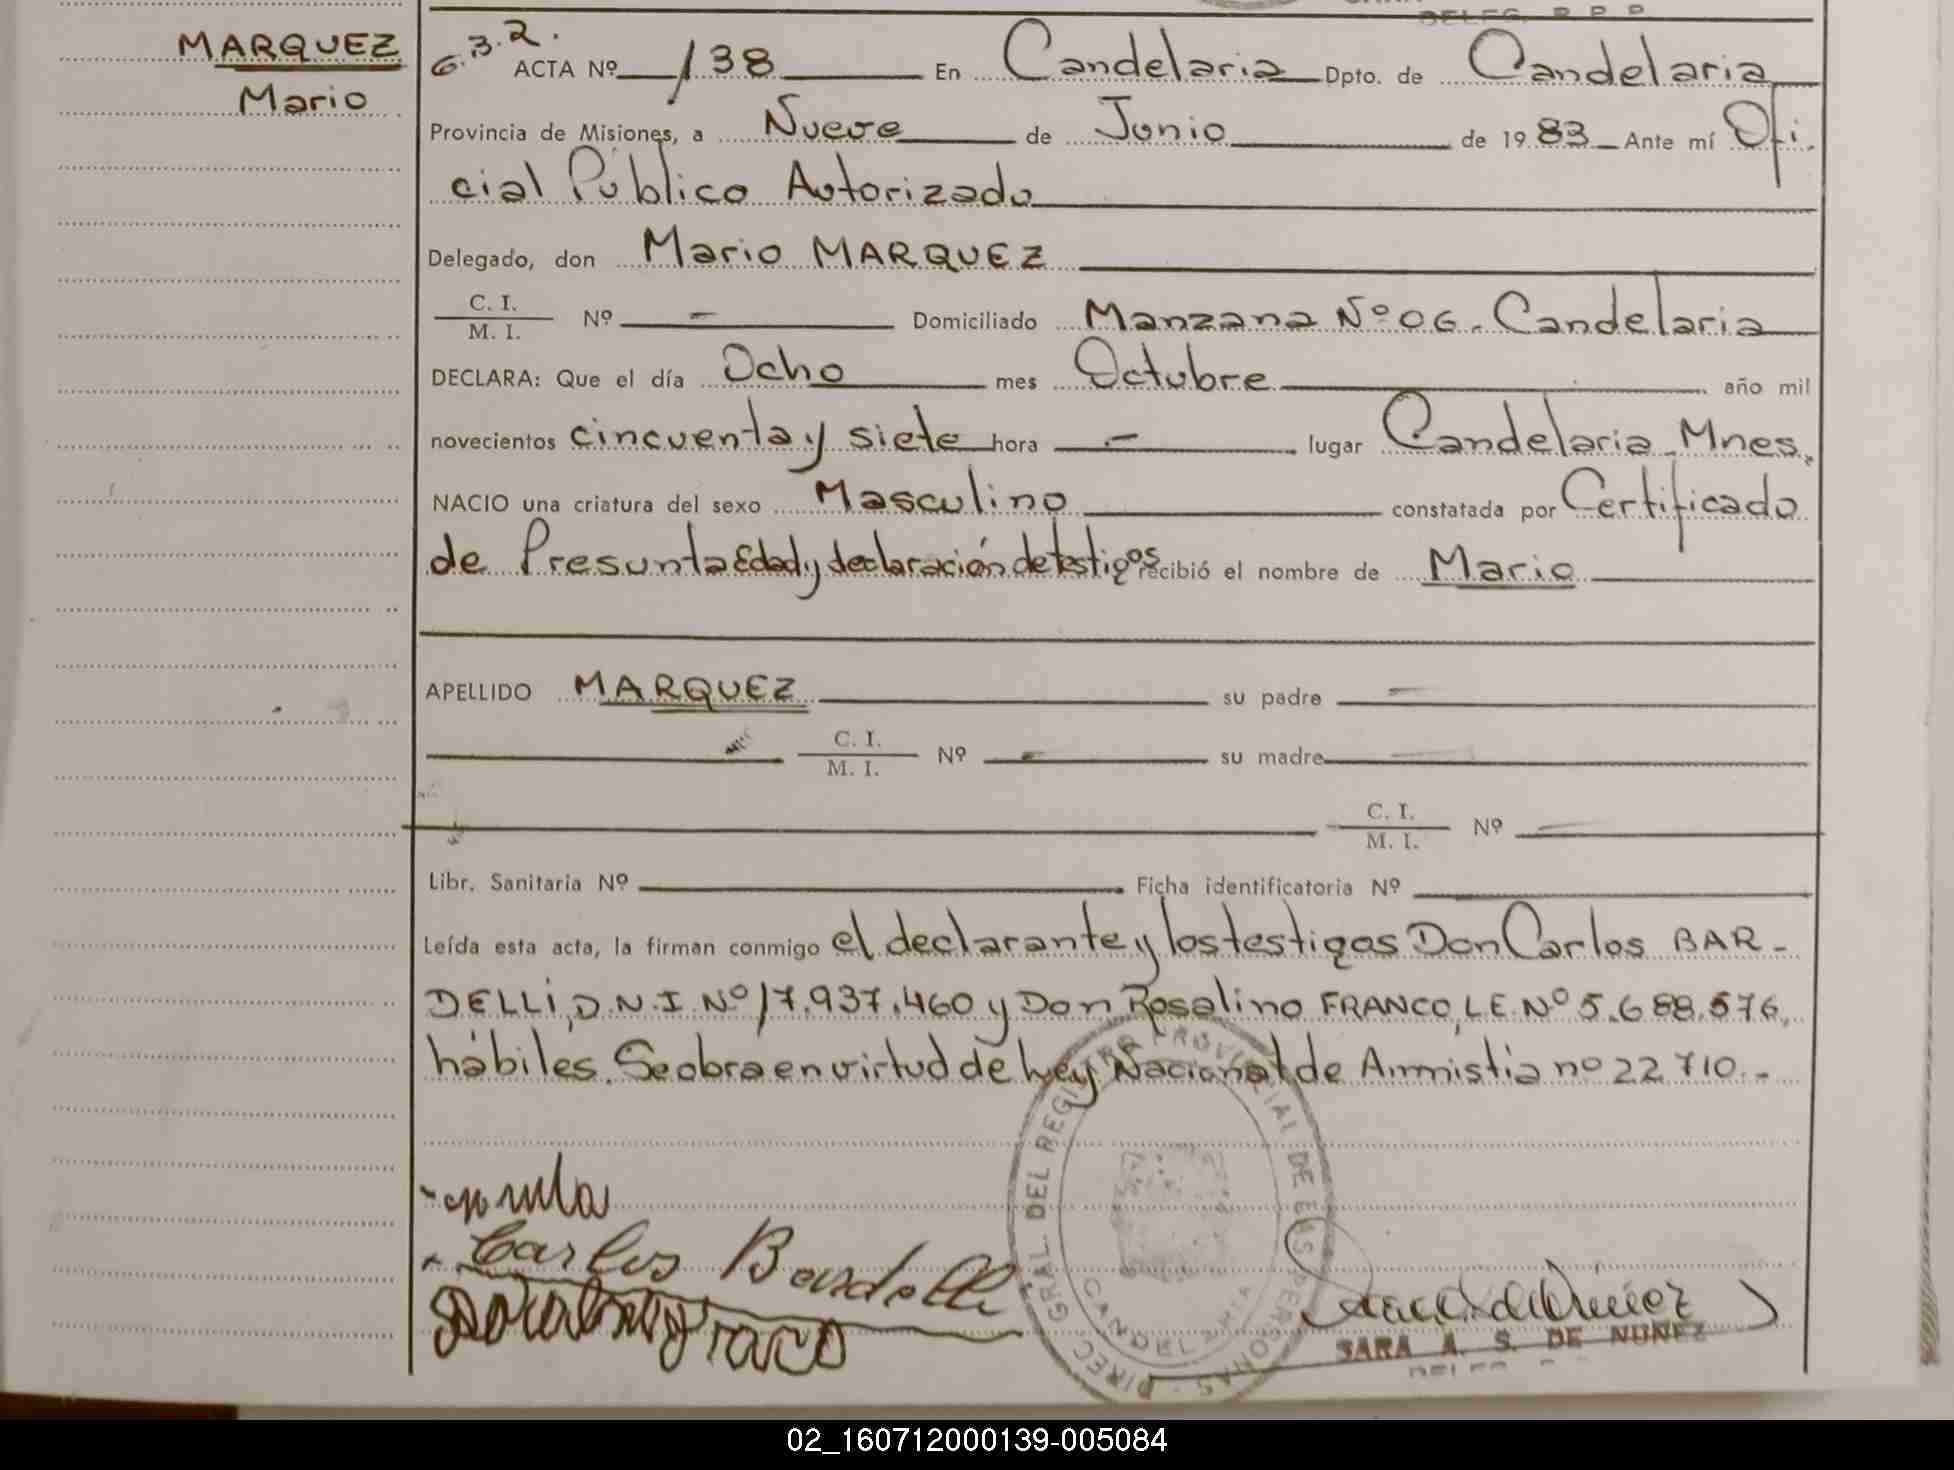 MARQUEZ
Mario
6.3.2.
ACTA Nº 138 En Candelaria Dpto. de Candelaria
Provincia de Misiones, a Nueve de Junio de 1983 Ante mí Ofi.
cial Público Autorizado
Delegado, don Mario MARQUEZ
C. I.
M. I. Nº - Domiciliado Manzana Nº 06. Candelaria
DECLARA: Que el día Ocho mes Octubre año mil
novecientos cincuenta y siete hora - lugar Candelaria. Mnes.
NACIO una criatura del sexo Masculino constatada por Certificado
de Presunta Edad y declaración de testigos recibió el nombre de Mario
APELLIDO MARQUEZ su padre -
C. I.
M. I. Nº - su madre -
C. I.
M. I. Nº -
Libr. Sanitaria Nº Ficha identificatoria Nº
Leída esta acta, la firman conmigo el declarante y los testigos Don Carlos BAR-
DELLI, D.N.I. Nº 17.937.460 y Don Rosalino FRANCO, L.E. Nº 5.688.576,
hábiles. Se obra en virtud de Ley Nacional de Amnistia nº 22 710.-
Carlos Bardelli
DIREC. GRAL. DEL REGISTRO PROVINCIAL DE LAS PERSONAS
CANDELARIA
SARA A. S. DE NUÑEZ
02_160712000139-005084